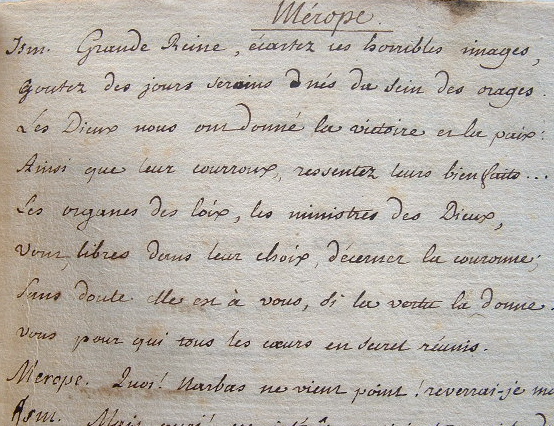 Mérope.
Ism. Grande Reine, écartez ces horribles images,
Goutez des jours serains nés du sein des orages.
Les Dieux nous ont donné la victoire et la paix:
Ainsi que leur courroux, ressentez leurs bienfaits...
Les organes des loix, les ministres des Dieux,
Vont, libres dans leur choix, décerner la couronne;
Sans doute elle est à vous, si la vertu la donne.
Vous pour qui tous les cœurs en secret réunis.
Mérope. Quoi! Narbas ne vient point! reverrai-je mo
Ism. Mais